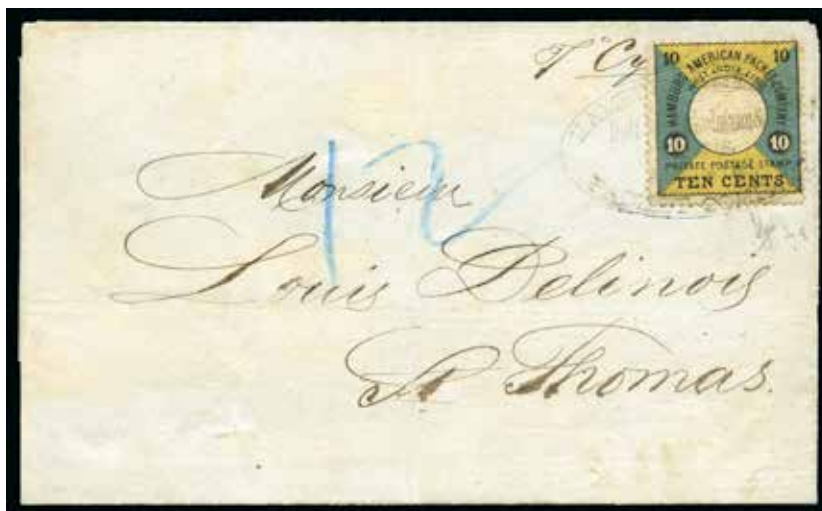 pr Cy
10 10
HAMBURG AMERICAN PACKET COMPANY
WEST INDIA LINE
10 10
PRIVATE POSTAGE STAMP
TEN CENTS
12
Monsieur
Louis Delinois
St Thomas.